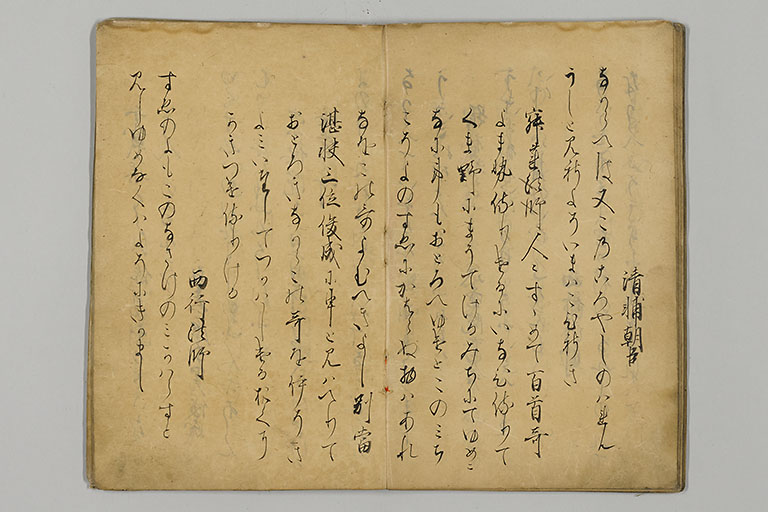 清輔朝臣
なからへは又このころやしのはれん
うしと見し世そいまはこひしき
寂蓮法師人〻すゝめて百首哥
よませ侍りけるにいなひ侍りて
くま野にまうてけるみちにてゆめに
なに事もおとろへゆけとこのみち
こそよのすゑにかはらぬ物はあれ
なをこの哥よむへきよし別當
湛快三位俊成に申と見侍りて
おとろきなからこの哥をいそき
よみいたしてつかはしけるおくに
かきつけ侍りける
西行法師
すゑのよもこのなさけのみかはらすと
見しゆめなくはよそにきかまし